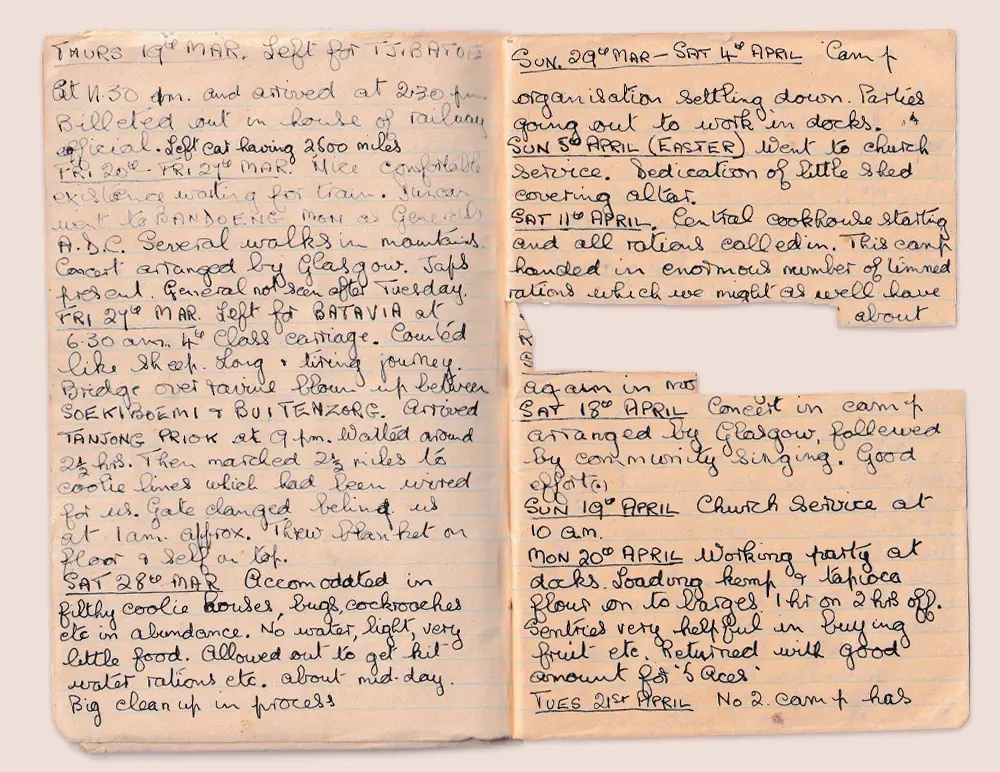 THURS 19th MAR. Left for TJ.BATOE
At 11.30 am. and arrived at 2.30 pm.
Billeted out in house of railway
official. Left car having 2600 miles
FRI 20th - FRI 27th MAR. Nice comfortable
existence waiting for train. Duncan
went to BANDOENG MON as Generals
A.D.C. Several walks in mountains
Concert arranged by Glasgow. Japs
present. General not seen after Tuesday.
FRI 27th MAR. Left for BATAVIA at
6.30 am. 4th Class carriage. Counted
like sheep. Long & tiring journey.
Bridge over ravine blown up between
SOEKIBOEMI & BUITENZORG. Arrived
TANJONG PRIOK at 9 pm. Waited around
2½ hrs. Then marched 2½ miles to
coolie lines which had been wired
for us. Gate clanged behind us
at 1am. approx. Threw blanket on
floor & self on top.
SAT 28th MAR Accomodated in
filthy coolie houses, bugs, cockroaches
etc in abundance. No water, light, very
little food. Allowed out to get kit
water rations etc. about mid-day.
Big clean up in process
SUN. 29th MAR - SAT 4th APRIL Camp
organisation settling down. Parties
going out to work in docks.
SUN 5th APRIL (EASTER) Went to church
service. Dedication of little shed
covering altar.
SAT 11th APRIL. Central cookhouse starting
and all rations called in. This camp
handed in enormous number of tinned
rations which we might as well have
about
again in
SAT 18th APRIL Concert in camp
arranged by Glasgow, followed
by community singing. Good
effort.
SUN 19th APRIL Church Service at
10 am.
MON 20th APRIL Working party at
docks. Loading hemp & tapioca
flour on to barges. 1 hr on 2 hrs off.
Sentries very helpful in buying
fruit etc. Returned with good
amount for '5 Aces'
TUES 21st APRIL No 2. camp has